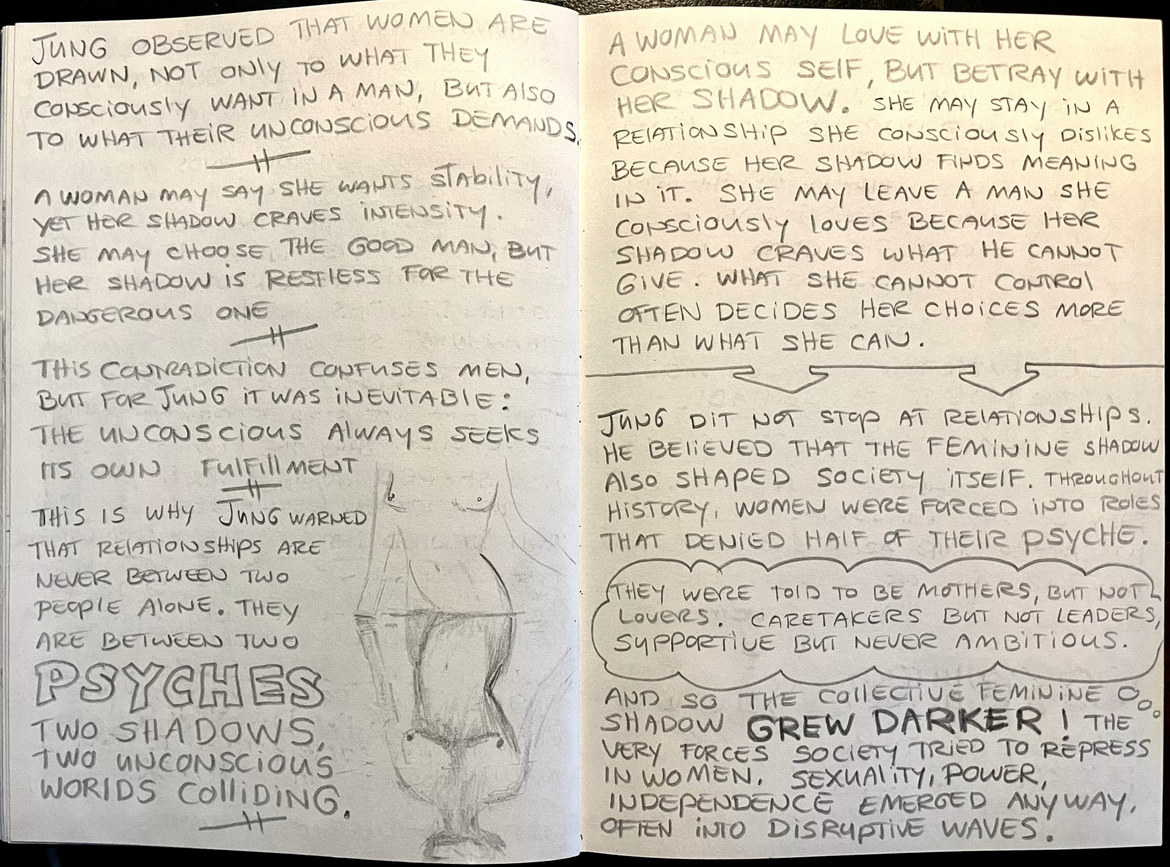 JUNG OBSERVED THAT WOMEN ARE
DRAWN, NOT ONLY TO WHAT THEY
CONSCIOUSLY WANT IN A MAN, BUT ALSO
TO WHAT THEIR UNCONSCIOUS DEMANDS.
A WOMAN MAY SAY SHE WANTS STABILITY,
YET HER SHADOW CRAVES INTENSITY.
SHE MAY CHOOSE THE GOOD MAN, BUT
HER SHADOW IS RESTLESS FOR THE
DANGEROUS ONE
THIS CONTRADICTION CONFUSES MEN,
BUT FOR JUNG IT WAS INEVITABLE:
THE UNCONSCIOUS ALWAYS SEEKS
ITS OWN FULFILLMENT
THIS IS WHY JUNG WARNED
THAT RELATIONSHIPS ARE
NEVER BETWEEN TWO
PEOPLE ALONE. THEY
ARE BETWEEN TWO
PSYCHES
TWO SHADOWS,
TWO UNCONSCIOUS
WORLDS COLLIDING.
A WOMAN MAY LOVE WITH HER
CONSCIOUS SELF, BUT BETRAY WITH
HER SHADOW. SHE MAY STAY IN A
RELATIONSHIP SHE CONSCIOUSLY DISLIKES
BECAUSE HER SHADOW FINDS MEANING
IN IT. SHE MAY LEAVE A MAN SHE
CONSCIOUSLY LOVES BECAUSE HER
SHADOW CRAVES WHAT HE CANNOT
GIVE. WHAT SHE CANNOT CONTROL
OFTEN DECIDES HER CHOICES MORE
THAN WHAT SHE CAN.
JUNG DIT NOT STOP AT RELATIONSHIPS.
HE BELIEVED THAT THE FEMININE SHADOW
ALSO SHAPED SOCIETY ITSELF. THROUGHOUT
HISTORY, WOMEN WERE FORCED INTO ROLES
THAT DENIED HALF OF THEIR PSYCHE.
THEY WERE TOLD TO BE MOTHERS, BUT NOT
LOVERS. CARETAKERS BUT NOT LEADERS,
SUPPORTIVE BUT NEVER AMBITIOUS.
AND SO THE COLLECTIVE FEMININE
SHADOW GREW DARKER! THE
VERY FORCES SOCIETY TRIED TO REPRESS
IN WOMEN. SEXUALITY, POWER,
INDEPENDENCE EMERGED ANYWAY,
OFTEN INTO DISRUPTIVE WAVES.